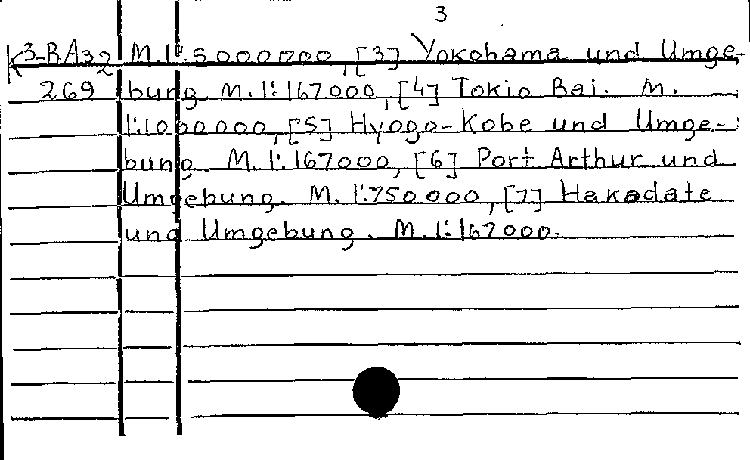 3
K3-BA32 M.1:5000000, [3] Yokohama und Umge-
269 bung M.1:167000, [4] Tokio Bai. M.
1:1000000, [5] Hyogo-Kobe und Umge-
bung. M. 1:167000, [6] Port Arthur und
Umgebung. M. 1:750.000, [7] Hakodate
und Umgebung. M.1:167000.